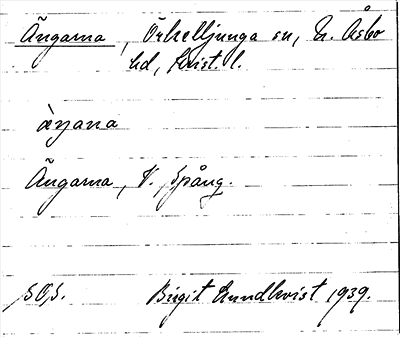 Ängarna, Örkelljunga sn, N. Åsbo
hd, Krist. l.
àŋana
Ängarna, V. Spång.
SOS. Birgit Lundkvist 1939.